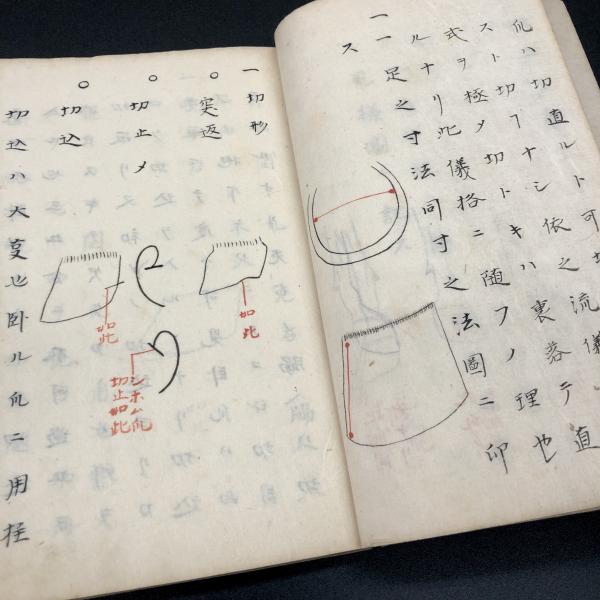 爪ハ切直ルト可切
スト切フナシ依之流儀
式ヲ極メ切トキハ裏落テ直
ルナリ此儀格ニ随フノ理也
一足之寸法同寸之法圖ニ卯
ス
一切形
○突返
如此
○切止メ
シホム爪
切止如此
○切込
如此
切込ハ大也卧ル爪ニ用